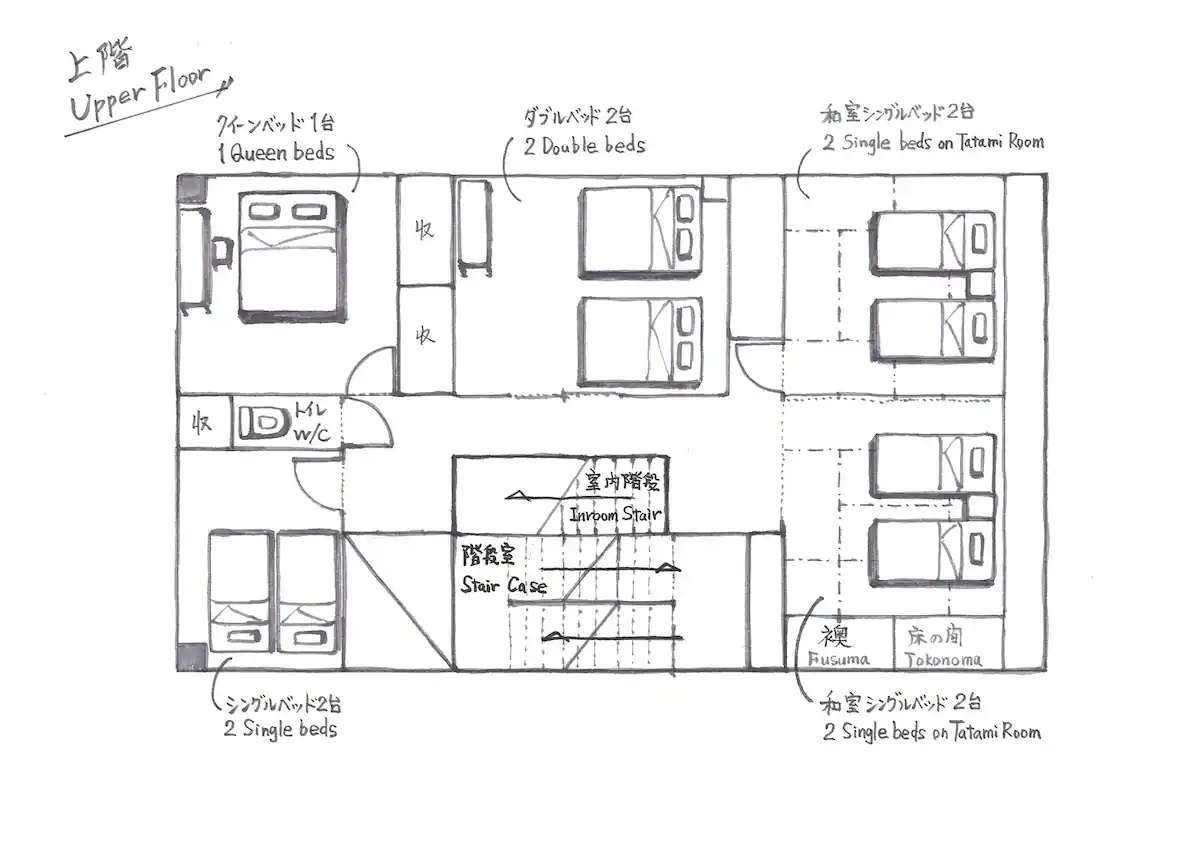 上階
Upper Floor
クイーンベッド1台
1 Queen beds
ダブルベッド2台
2 Double beds
和室シングルベッド2台
2 Single beds on Tatami Room
収
収
収
トイレ
W/C
室内階段
Inroom Stair
階段室
Stair Case
襖
Fusuma
床の間
Tokonoma
シングルベッド2台
2 Single beds
和室シングルベッド2台
2 Single beds on Tatami Room